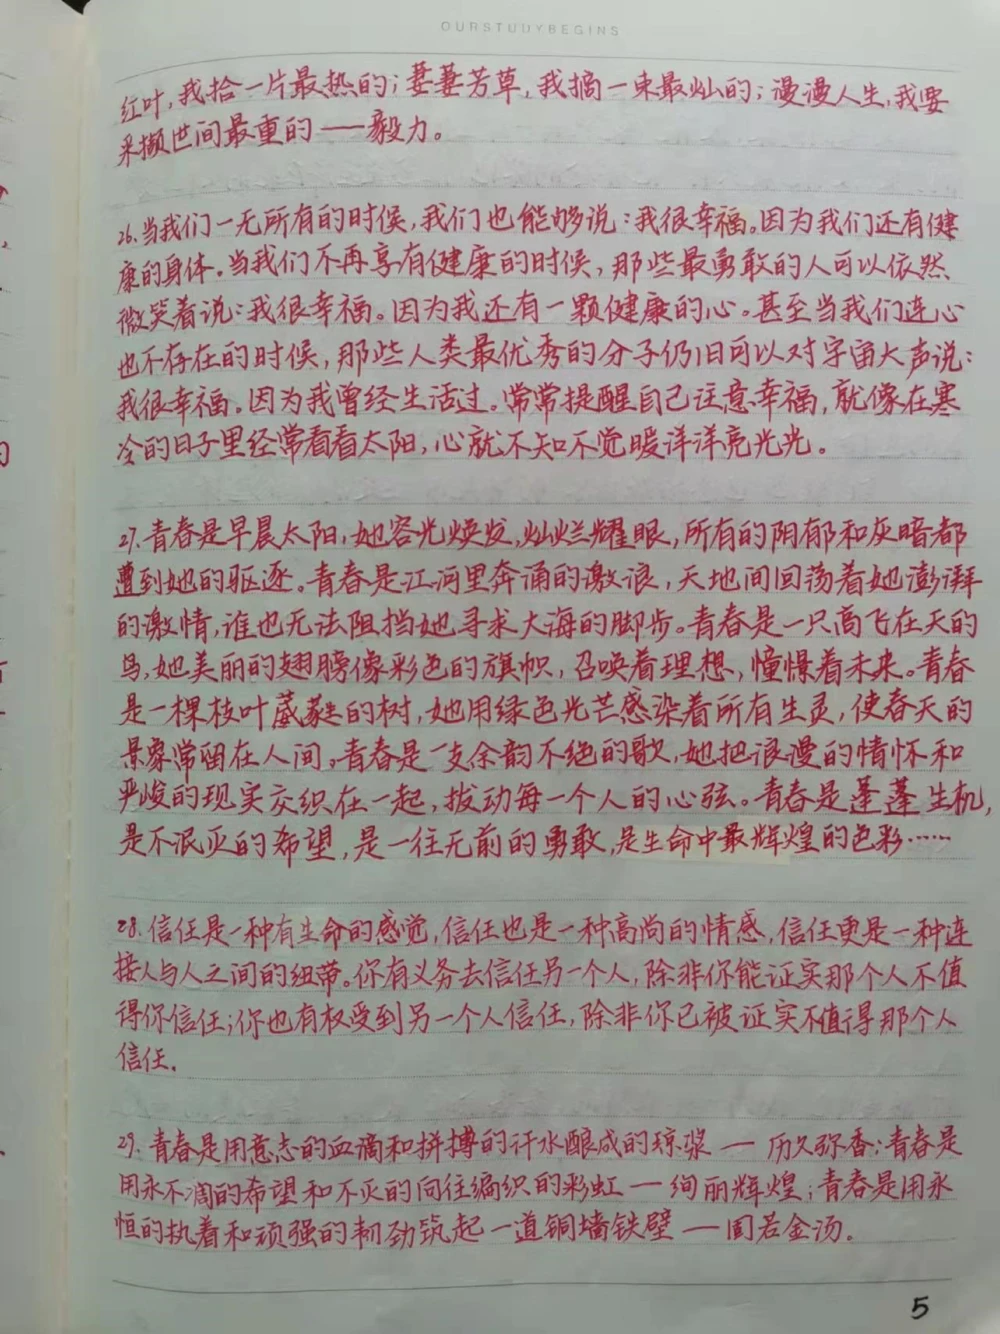 OURSTUDYBEGINS
红叶,我拾一片最热的;萋萋芳草,我摘一束最灿的;漫漫人生,我要
采撷世间最重的——毅力。
26.当我们一无所有的时候,我们也能够说:我很幸福。因为我们还有健
康的身体。当我们不再享有健康的时候,那些最勇敢的人可以依然
微笑着说:我很幸福。因为我还有一颗健康的心。甚至当我们连心
也不存在的时候,那些人类最优秀的分子仍旧可以对宇宙大声说:
我很幸福。因为我曾经生活过。常常提醒自己注意幸福,就像在寒
冷的日子里经常看看太阳,心就不知不觉暖洋洋亮光光。
27.青春是早晨太阳,她容光焕发,灿烂耀眼,所有的阴郁和灰暗都
遭到她的驱逐。青春是江河里奔涌的激浪,天地间回荡着她澎湃
的激情,谁也无法阻挡她寻求大海的脚步。青春是一只高飞在天的
鸟,她美丽的翅膀像彩色的旗帜,召唤着理想,憧憬着未来。青春
是一棵枝叶葳蕤的树,她用绿色光芒感染着所有生灵,使春天的
景象常留在人间。青春是一支余韵不绝的歌,她把浪漫的情怀和
严峻的现实交织在一起,拨动每一个人的心弦。青春是蓬蓬生机,
是不泯灭的希望,是一往无前的勇敢,是生命中最辉煌的色彩……
28.信任是一种有生命的感觉,信任也是一种高尚的情感,信任更是一种连
接人与人之间的纽带。你有义务去信任另一个人,除非你能证实那个人不值
得你信任;你也有权受到另一个人信任,除非你已被证实不值得那个人
信任。
29.青春是用意志的血滴和拼搏的汗水酿成的琼浆——历久弥香;青春是
用永不凋的希望和不灭的向往编织的彩虹——绚丽辉煌;青春是用永
恒的执着和顽强的韧劲筑起一道铜墙铁壁——固若金汤。
5